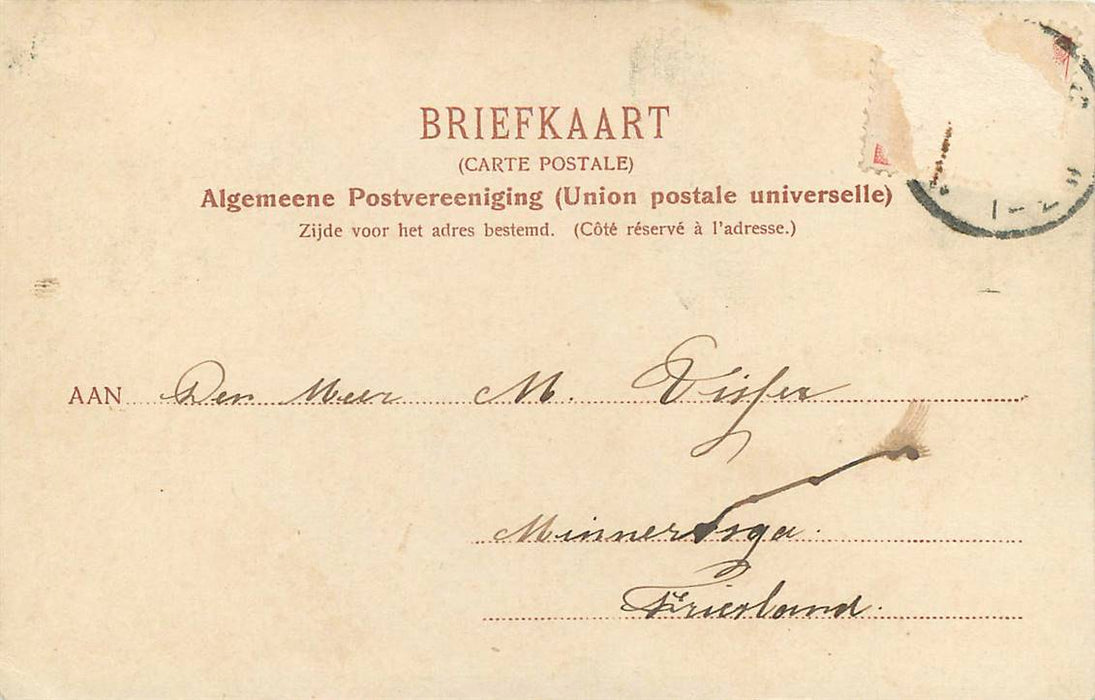 BRIEFKAART
(CARTE POSTALE)
Algemeene Postvereeniging (Union postale universelle)
Zijde voor het adres bestemd. (Côté réservé à l'adresse.)
AAN Den Heer M. Visser
Minnertsga.
Friesland.